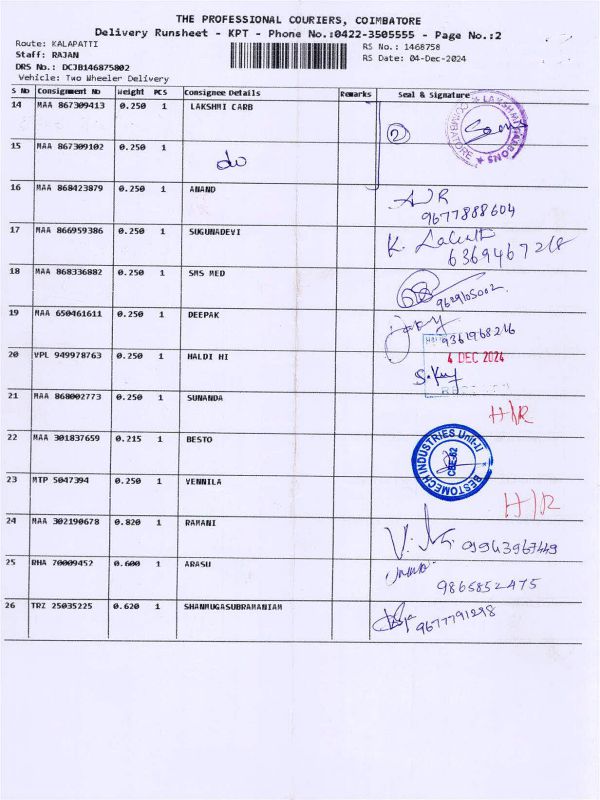 THE PROFESSIONAL COURIERS, COIMBATORE
Delivery Runsheet - KPT - Phone No.:0422-3505555 - Page No.:2
Route: KALAPATTI
RS No.: 1468758
Staff: RAJAN
RS Date: 04-Dec-2024
DRS No.: DCJB146875802
Vehicle: Two Wheeler Delivery
S No Consignment No Weight PCS Consignee Details Remarks Seal & Signature
14 MAA 867309413 0.250 1 LAKSHMI CARB
2
LAKSHMI CARBONS ★ COIMBATORE ★
15 MAA 867309102 0.250 1
do
16 MAA 868423879 0.250 1 ANAND
9677888604
17 MAA 866959386 0.250 1 SUGUNADEVI
K.
18 MAA 868336882 0.250 1 SMS MED
19 MAA 650461611 0.250 1 DEEPAK
9361968216
20 VPL 949978763 0.250 1 HALDI HI
4 DEC 2024
21 MAA 868002773 0.250 1 SUNANDA
H/R
22 MAA 301837659 0.215 1 BESTO
BESTOMECH INDUSTRIES Unit-II
CBE-62
23 MTP 5047394 0.250 1 VENNILA
H/R
24 MAA 302190678 0.820 1 RAMANI
25 RHA 70009452 0.600 1 ARASU
9865852475
26 TRZ 25035225 0.620 1 SHANMUGASUBRAMANIAM
9677791298